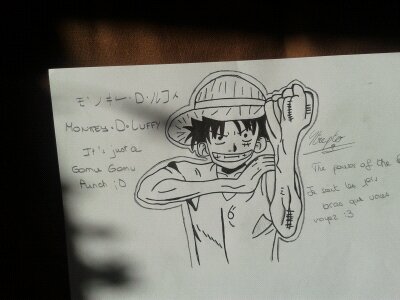 モンキー・D・ルフィ
MONKEY・D・LUFFY
It's just a
Gomu Gomu
Punch ;D
The power of the
Je sais les
bras que vous
voyez :3